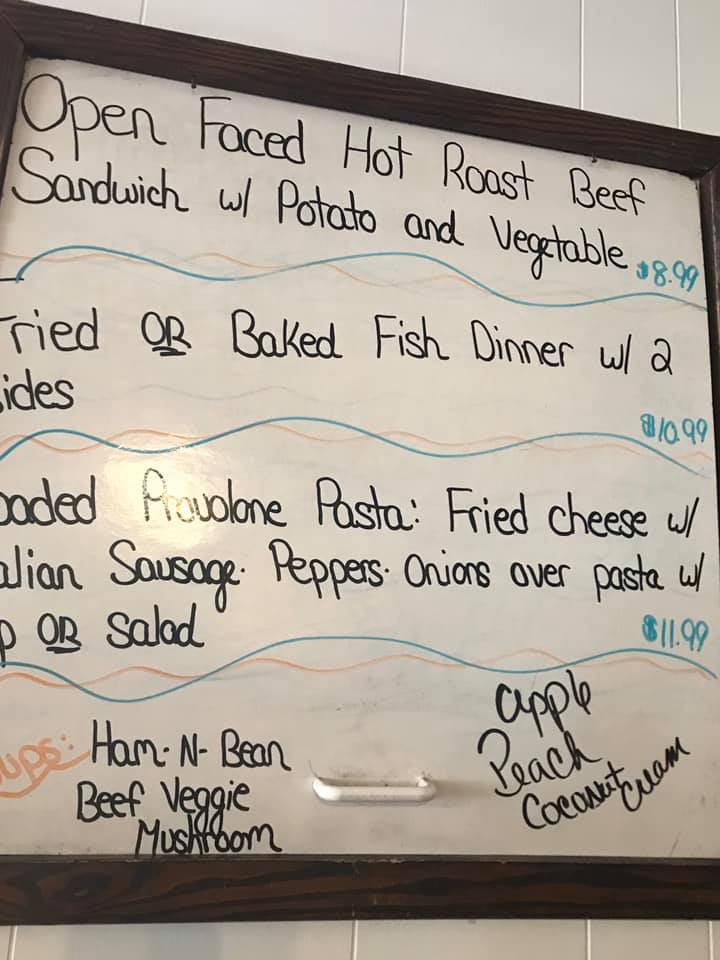 Open Faced Hot Roast Beef
Sandwich w/ Potato and Vegetable $8.99
Fried OR Baked Fish Dinner w/ 2
ides
$10.99
oaded Provolone Pasta: Fried cheese w/
alian Sausage. Peppers. Onions over pasta w/
p OR Salad
$11.99
ups: Ham-N-Bean
Beef Veggie
Mushroom
apple
Peach
Coconut Cream